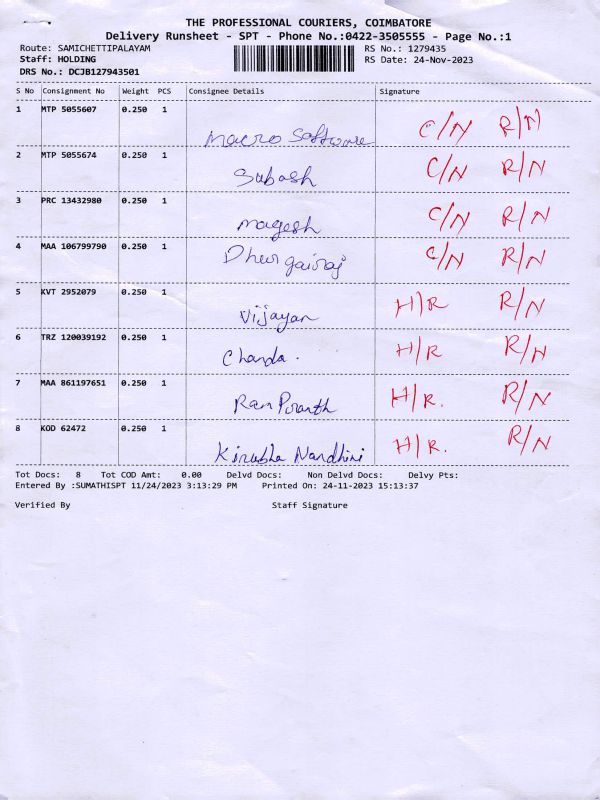 THE PROFESSIONAL COURIERS, COIMBATORE
Delivery Runsheet - SPT - Phone No.:0422-3505555 - Page No.:1
Route: SAMICHETTIPALAYAM RS No.: 1279435
Staff: HOLDING RS Date: 24-Nov-2023
DRS No.: DCJB127943501
S No Consignment No Weight PCS Consignee Details Signature
1 MTP 5055607 0.250 1
Macro Software C/N R/N
2 MTP 5055674 0.250 1
Subash C/N R/N
3 PRC 13432980 0.250 1
Magesh C/N R/N
4 MAA 106799790 0.250 1
C/N R/N
5 KVT 2952079 0.250 1
Vijayan H/R R/N
6 TRZ 120039192 0.250 1
Chanda. H/R R/N
7 MAA 861197651 0.250 1
Ram H/R. R/N
8 KOD 62472 0.250 1
Kirubha Nandhini H/R. R/N
Tot Docs: 8 Tot COD Amt: 0.00 Delvd Docs: Non Delvd Docs: Delvy Pts:
Entered By :SUMATHISPT 11/24/2023 3:13:29 PM Printed On: 24-11-2023 15:13:37
Verified By Staff Signature